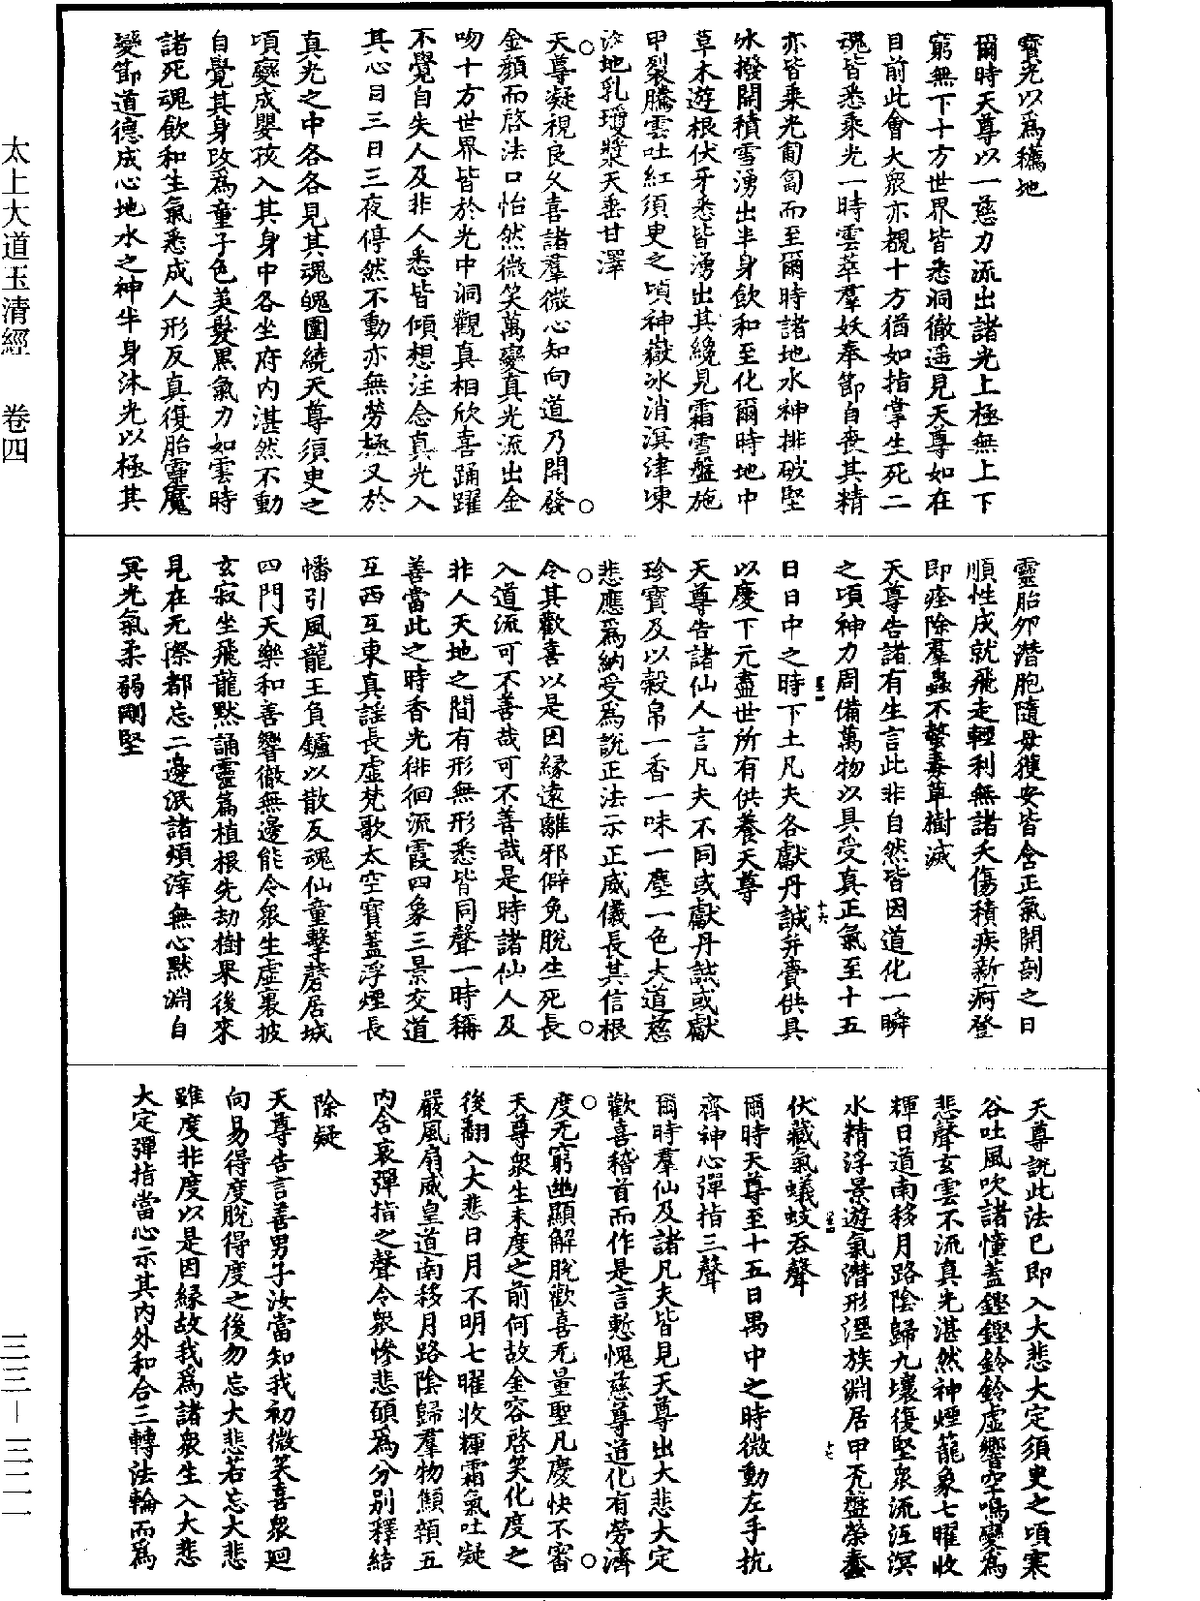 寳光以爲穢地
爾時天尊以一慈力流出諸光上極無上下
窮無下十方世界皆悉洞徹遥見天尊如在
目前此會大衆亦覩十方猶如指掌生死二
魂皆悉乘光一時雲萃羣妖奉節自喪其精
亦皆乘光匍匐而至爾時諸地水神排破堅
冰撥開積雪湧出半身飲和至化爾時地中
草木遊根伏牙悉皆湧出其纔見霜雪盤施
甲裂騰雲吐紅須臾之頃神嶽冰消溟津凍
液地乳瓊漿天垂甘澤
天尊凝視良久喜諸羣微心知向道乃開發
金顏而啓法口怡然微笑萬變真光流出金
吻十方世界皆於光中洞觀真相欣喜踊躍
不覺自失人及非人悉皆傾想注念真光入
其心目三日三夜停然不動亦無勞極又於
真光之中各各見其魂魄圍繞天尊須臾之
頃變成嬰孩入其身中各坐府内湛然不動
自覺其身攺爲童子色美髮黒氣力如雲時
諸死魂飲和生氣悉成人形反真復胎靈魔
變節道德成心地水之神半身沐光以極其
靈胎夘潛胞隨母獲安皆含正氣開剖之日
順性成就飛走輕利無諸夭傷積疾新痾登
即痊除羣蟲不螫毒草樹滅
天尊告諸有生言此非自然皆因道化一瞬
之頃神力周備萬物以具受真正氣至十五
日日中之時下土凡夫各獻丹誠并賫供具
以慶下元盡世所有供養天尊
天尊告諸仙人言凡夫不同或獻丹誠或獻
珍寶及以穀帛一香一味一塵一色大道慈
悲應爲納受爲說正法示正威儀長其信根
令其歡喜以是因緣遠離邪僻免脫生死長
入道流可不善哉可不善哉是時諸仙人及
非人天地之間有形無形悉皆同聲一時稱
善當此之時香光徘徊流霞四象三景交道
互西互東真謡長虛梵歌太空寳蓋浮煙長
幡引風龍王負鑪以散反魂仙童擊磬居城
四門天樂和善響徹無邊能令衆生虛裏披
玄寂坐飛龍默誦靈篇植根先劫樹果後來
見在无際都忘二邊泯諸煩滓無心默淵自
冥光氣柔弱剛堅
天尊說此法已即入大悲大定須臾之頃寒
谷吐風吹諸憧蓋鏗鏗鈴鈴虛響空鳴變爲
悲聲玄雲不流真光湛然神煙籠象七曜收
輝日道南移月路陰歸九壤復堅衆流沍溟
水精浮景遊氣潛形溼族淵居甲禿盤榮蠢
伏藏氣蟻蚊吞聲
爾時天尊至十五日禺中之時微動左手抗
齊神心彈指三聲
爾時羣仙及諸凡夫皆見天尊出大悲大定
歡喜稽首而作是言慙愧慈尊道化有勞濟
度无窮幽顯解脫歡喜无量聖凡慶快不審
天尊衆生未度之前何故金容啓笑化度之
後翻入大悲日月不明七曜收輝霜氣吐凝
嚴風肩威皇道南移月路陰歸羣物顦顇五
内含哀彈指之聲令衆慘悲頋爲分別釋結
除疑
天尊告言善男子汝當知我初微笑喜衆廻
向易得度脫得度之後勿忘大悲若忘大悲
雖度非度以是因緣故我爲諸衆生入大悲
大定彈指當心示其内外和合三轉法輪而爲
太上大道玉清經　卷四
三三－三二一
十六
十七